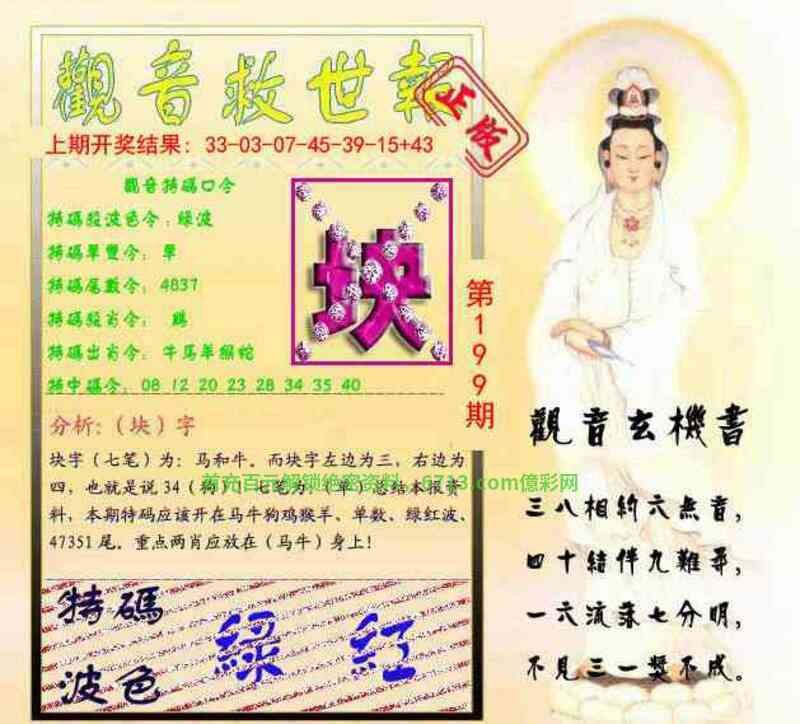 觀音救世報
正版
上期开奖结果：33-03-07-45-39-15+43
觀音特碼口令
特碼殺波色令：綠波
特碼單雙令： 單
特碼尾數令：4837
特碼殺肖令： 鷄
特碼出肖令：牛馬羊猴蛇
特中碼令：08 12 20 23 28 34 35 40
块
第199期
分析:（块）字
块字（七笔）为：马和牛。而块字左边为三，右边为
四，也就是说34（狗）！七笔为，（单）总结本报资
料，本期特码应该开在马牛狗鸡猴羊、单数、绿红波、
47351尾。重点两肖应放在（马牛）身上！
.com億彩网
特碼
波色
綠 紅
觀音玄機書
三八相約六無音，
四十結伴九難尋，
一六流落七分明，
不見三一獎不成。